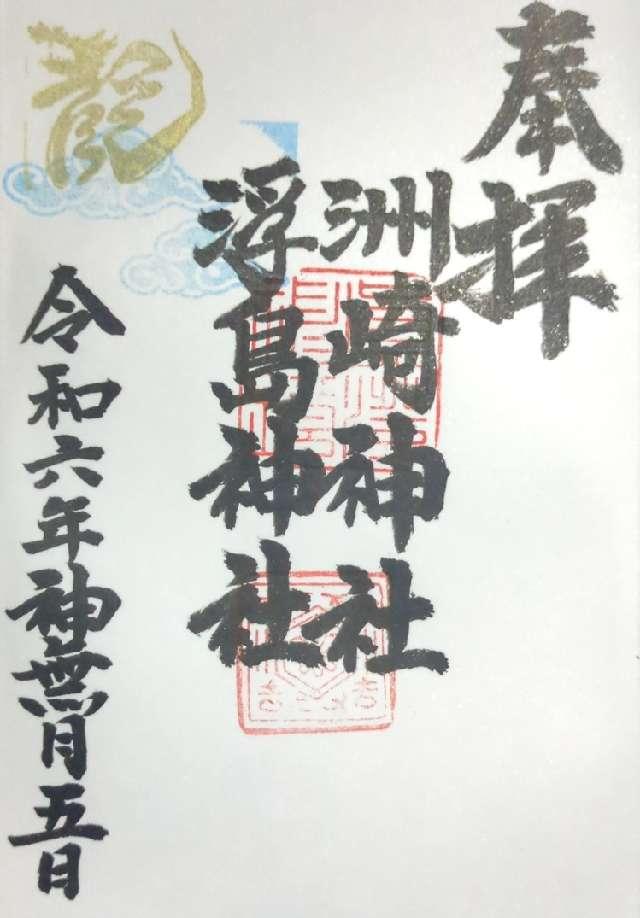 奉拝
洲崎神社
浮島神社
龍
令和六年神無月五日